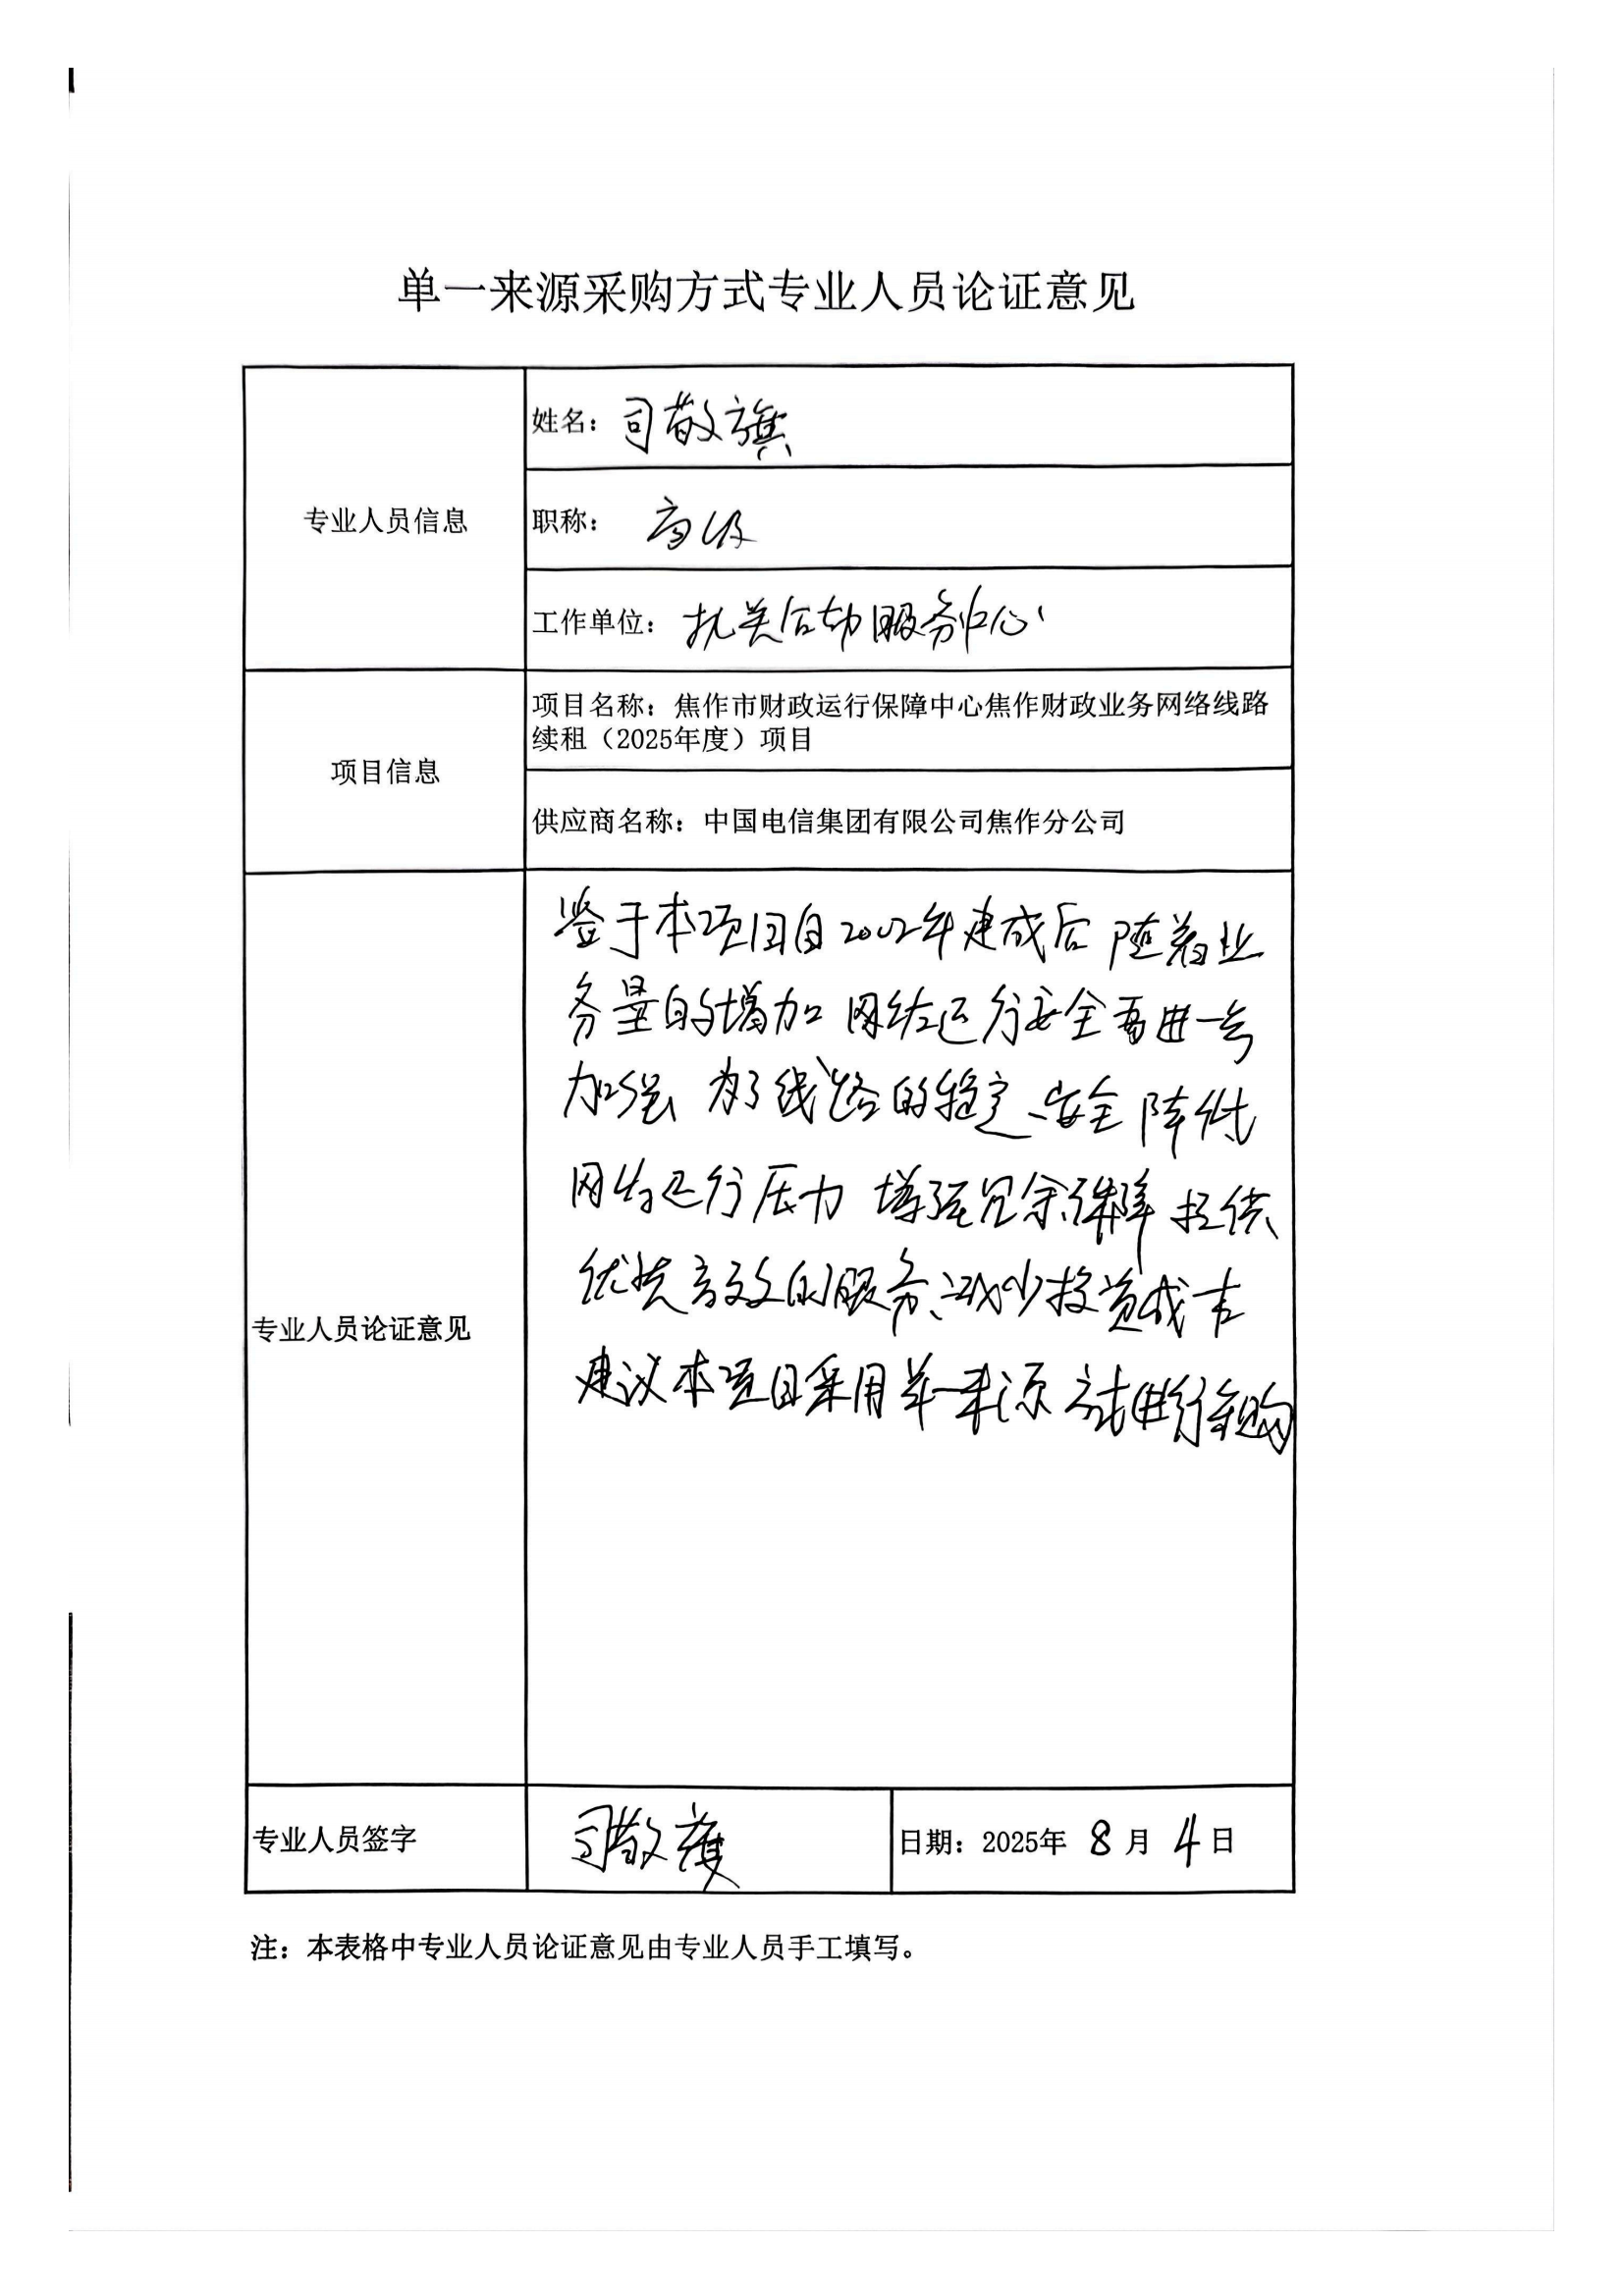 单一来源采购方式专业人员论证意见
专业人员信息
姓名：司敬旗
职称：高级
工作单位：机关后勤服务中心
项目信息
项目名称：焦作市财政运行保障中心焦作财政业务网络线路
续租（2025年度）项目
供应商名称：中国电信集团有限公司焦作分公司
专业人员论证意见
鉴于本项目自2002年建成后 随着业
务量的增加 网络运行安全要进一步
加强 为了线路的稳定、安全 降低
网络运行压力 增强冗余保障 提供
优质高效的服务、减少投资成本
建议本项目采用单一来源方式进行采购
专业人员签字
司敬旗
日期：2025年 8 月 4 日
注：本表格中专业人员论证意见由专业人员手工填写。